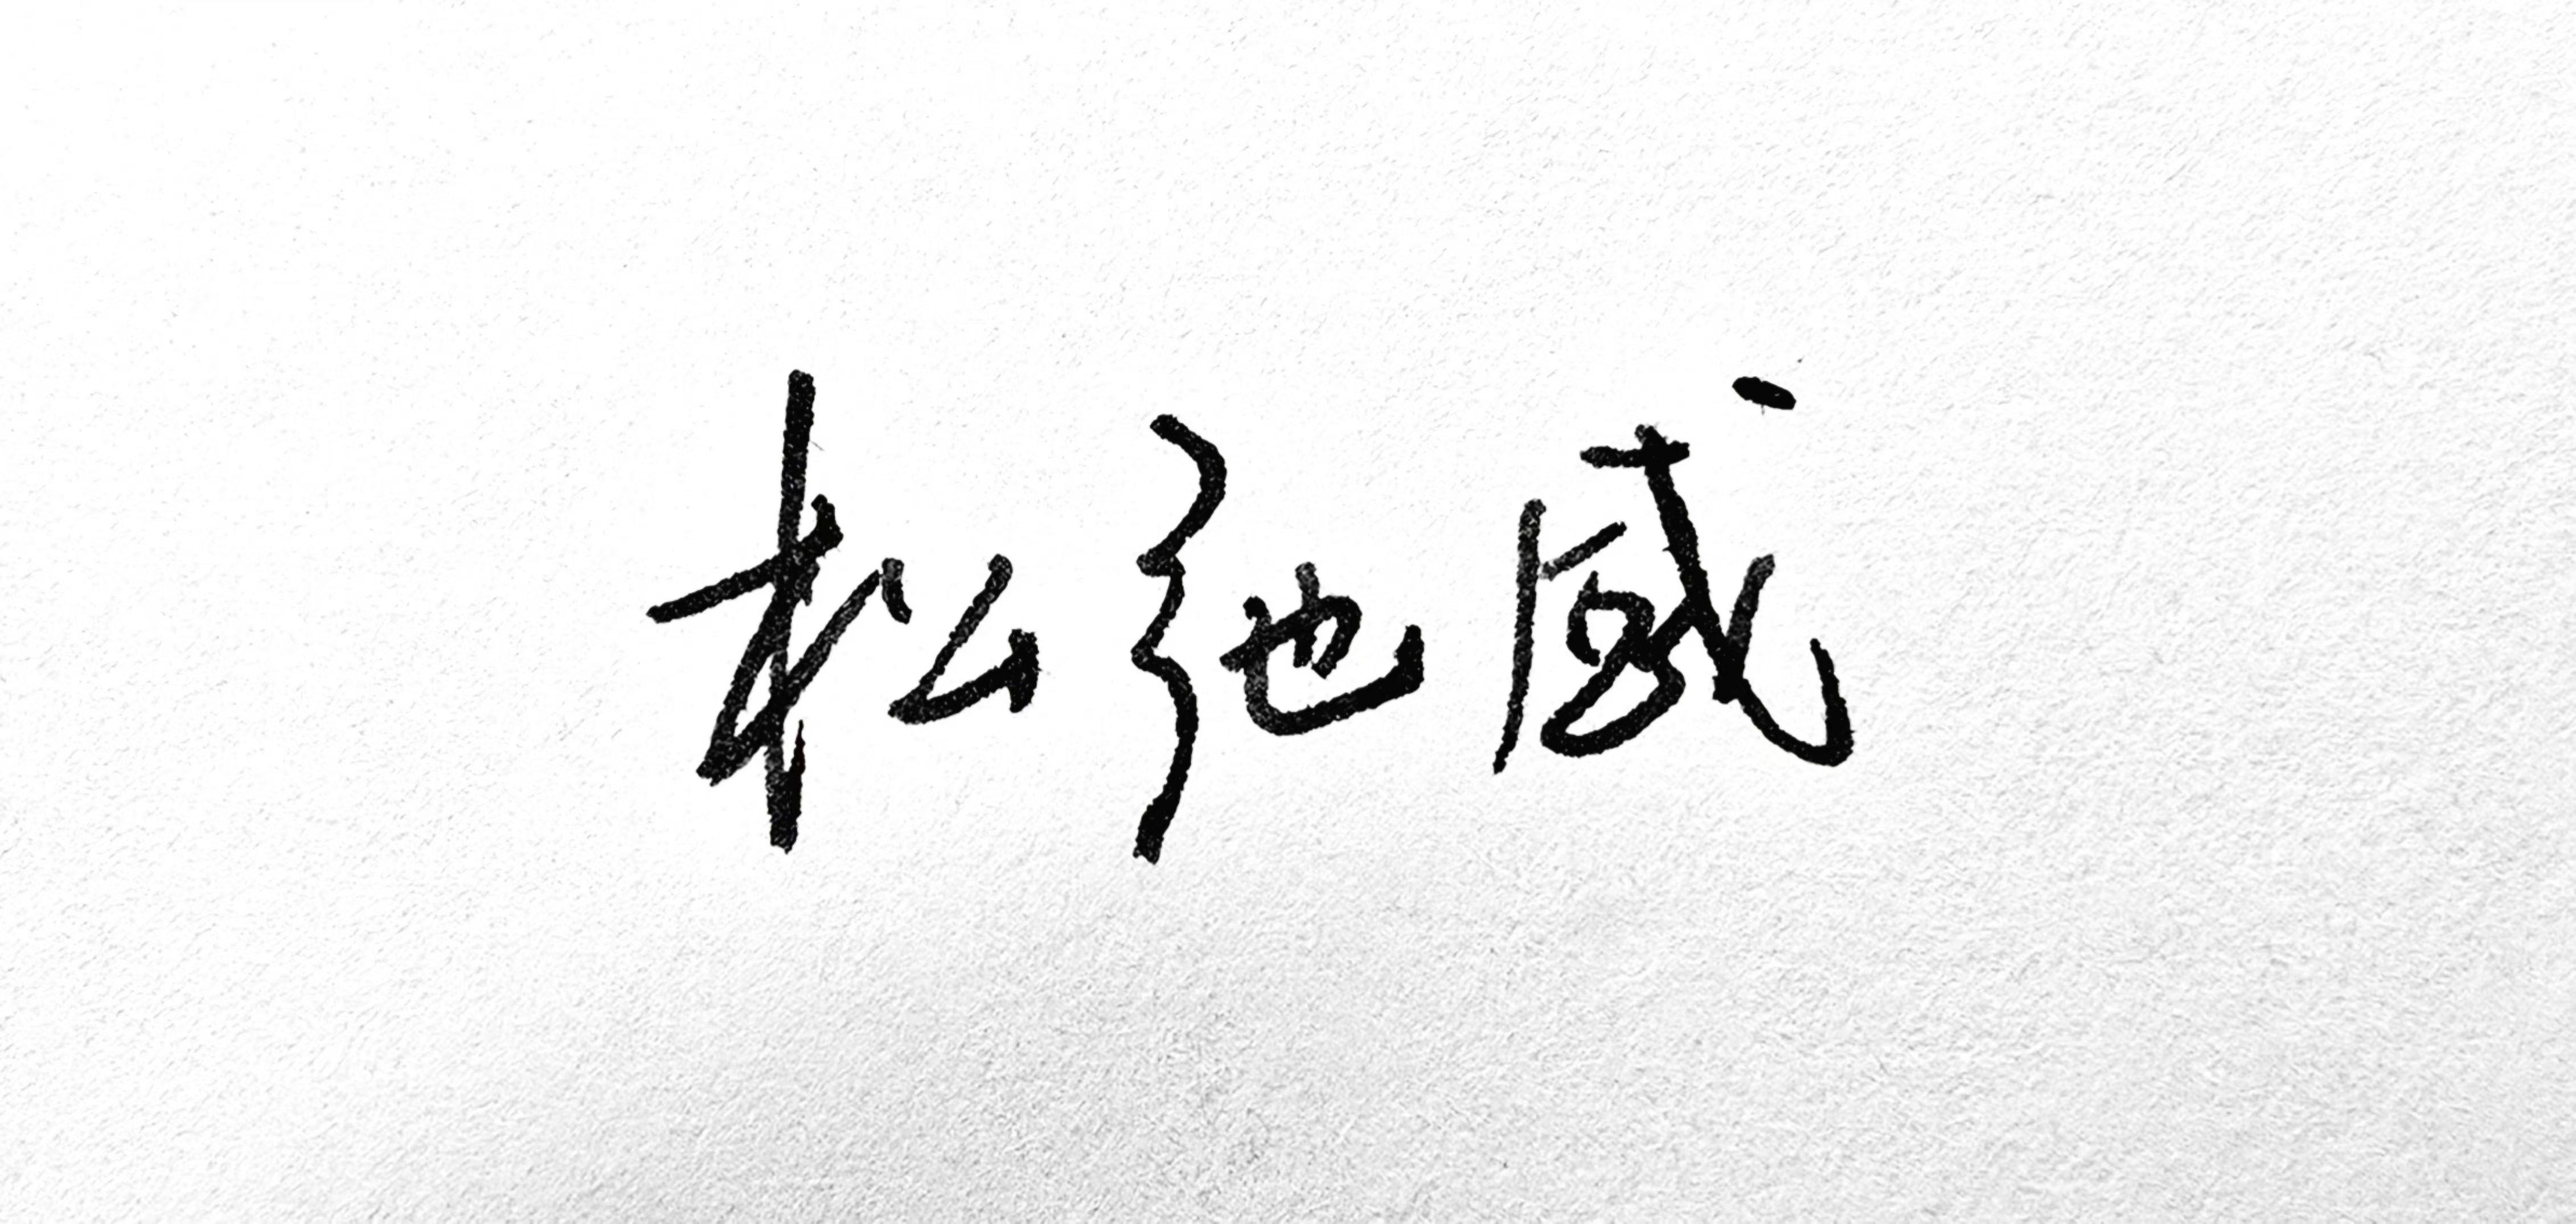 松弛感